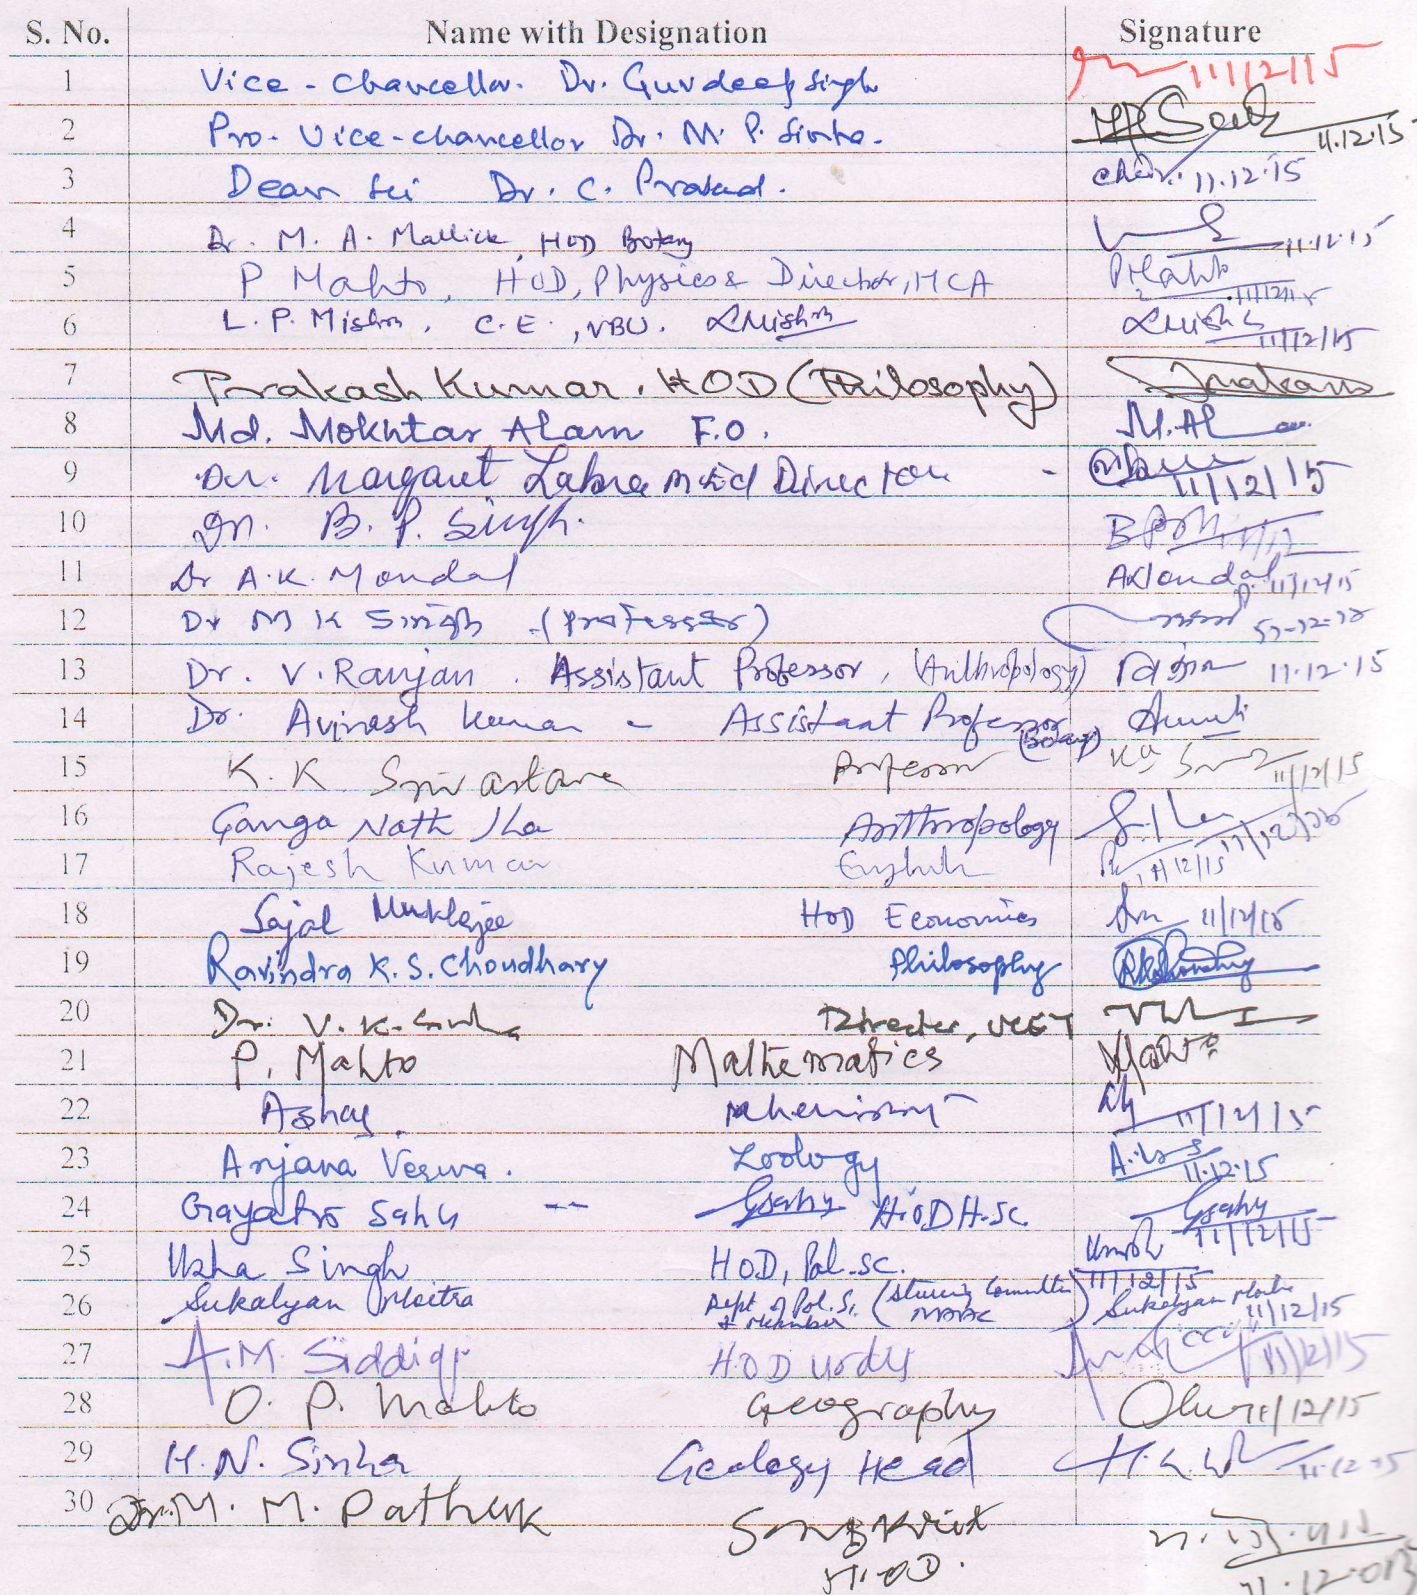 S. No. Name with Designation Signature
1 Vice-Chancellor. Dr. Gurdeep Singh 11/12/15
2 Pro-Vice-chancellor Dr. M. P. Sinha. 11.12.15
3 Dean Sci Dr. C. Prasad. 11.12.15
4 Dr. M. A. Mallick, HOD Botany 11.12.15
5 P Mahto, HOD, Physics & Director, MCA PMahto 11/12/15
6 L. P. Mishra. C.E., VBU. LMishra LMishra 11/12/15
7 Prakash Kumar. HOD (Philosophy) Prakash
8 Md. Mokhtar Alam F.O. M.Al
9 Dr. Margaret Lakra Director - 11/12/15
10 Dr. B. P. Singh. 11/12
11 Dr A.K. Mondal AKMondal 11/12/15
12 Dr M K Singh (Professor)
13 Dr. V. Ranjan. Assistant Professor, (Anthropology) 11.12.15
14 Dr. Avinash Kumar - Assistant Professor (Botany)
15 K. K Srivastava Professor 11/12/15
16 Ganga Nath Jha Anthropology 11/12/15
17 Rajesh Kumar English 11/12/15
18 Sajal Mukherjee HOD Economics 11/12/15
19 Ravindra K.S. Choudhary Philosophy RKChoudhary
20 Dr. V. K. Sinha Director, UCET
21 P. Mahto Mathematics Mahto
22 Chemistry 11/12/15
23 Anjana Verma. Zoology 11.12.15
24 Gayatri Sahu -- Gsahu H.O.D H.Sc. Gsahu 11/12/15
25 Usha Singh H.O.D, Pol.Sc. 11/12/15
26 Sukalyan Moitra Dept of Pol. Sc. & Member (Steering Committee NAAC) Sukalyan Moitra 11/12/15
27 A.M. Siddiqi HOD Urdu 11/12/15
28 O. P. Mahto Geography 11/12/15
29 H.N. Sinha Geology Head 11.12.15
30 Dr. M. M. Pathak Sanskrit
H.O.D.